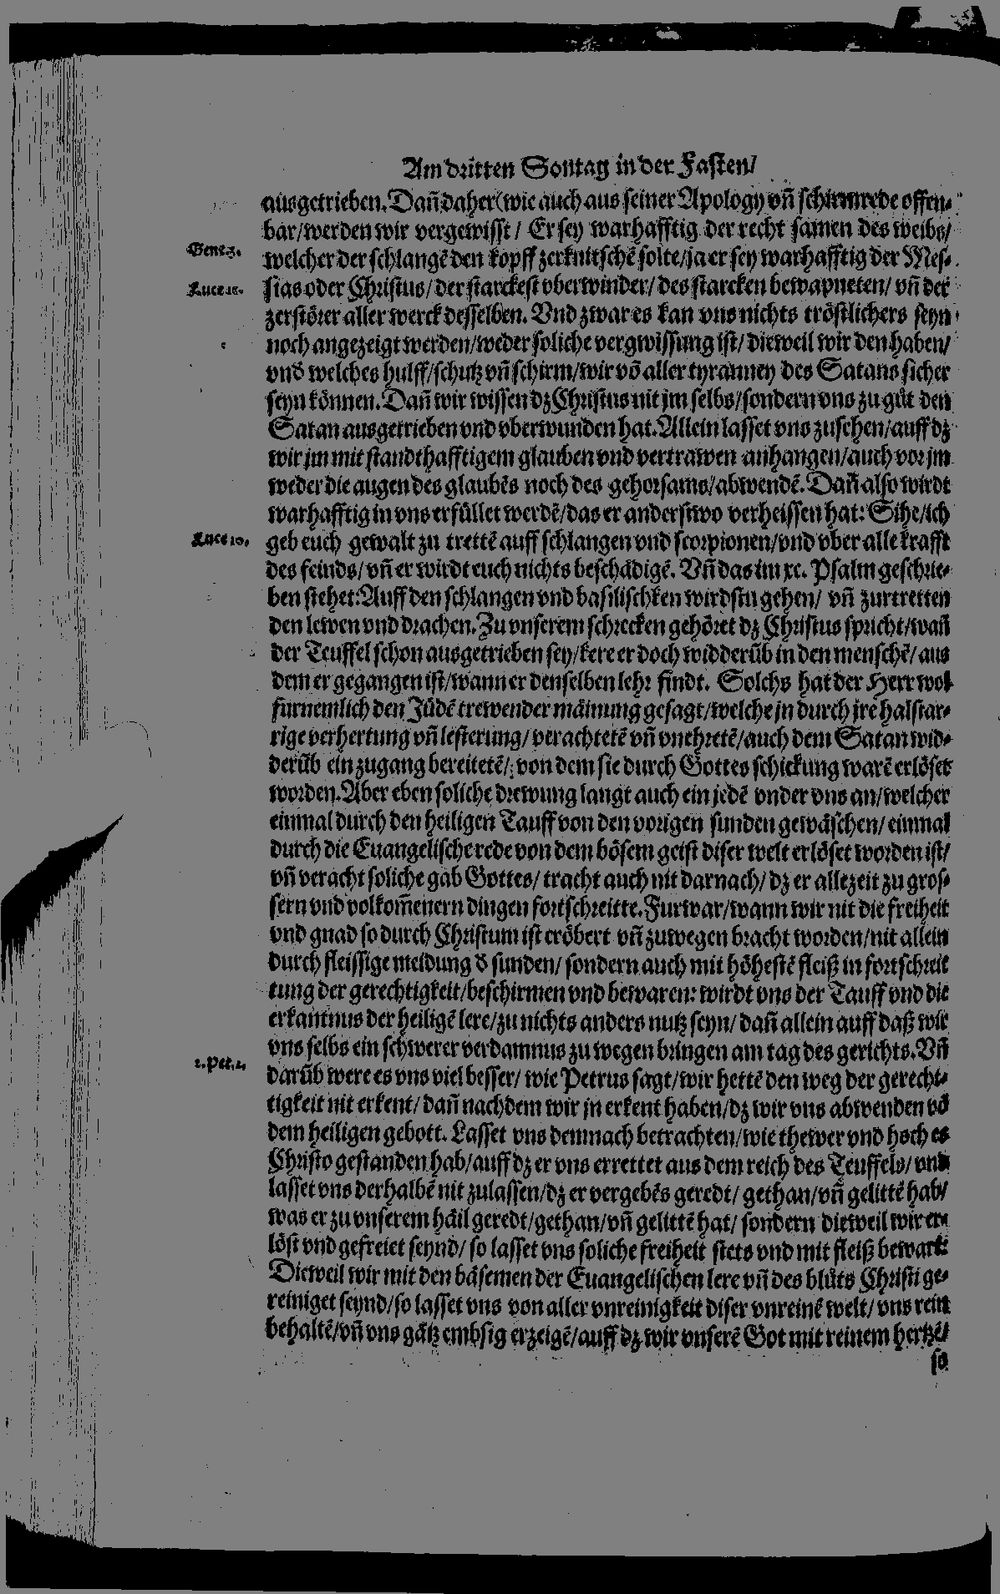 Am dritten Sontag in der Fasten/
ausgetrieben. Dañ daher (wie auch aus seiner Apology vñ schirmrede offen-
bar/werden wir vergewisst / Er sey warhafftig der recht samen des weibs/
Gene.3.
welcher der schlangē den kopff zerknitschē solte/ja er sey warhafftig der Mes-
Luce 11.
sias oder Christus/ der starckest vberwinder/ des starcken bewapneten/ vñ der
zerstörer aller werck desselben. Vnd zwar es kan vns nichts tröstlichers seyn
noch angezeigt werden/weder soliche vergwissung ist/ dieweil wir den haben/
vnd welches hulff/schutz vñ schirm/wir vō aller tyranney des Satans sicher
seyn können. Dañ wir wissen dz Christus nit jm selbs/sondern vns zu gůt den
Satan ausgetrieben vnd vberwunden hat. Allein lasset vns zusehen/auff dz
wir jm mit standthafftigem glauben vnd vertrawen anhangen/auch vor jm
weder die augen des glaubēs noch des gehorsams/abwendē. Dañ also wirdt
warhafftig in vns erfüllet werdē/das er anderstwo verheissen hat: Sihe/ich
Luce 10.
geb euch gewalt zu trettē auff schlangen vnd scorpionen/vnd vber alle krafft
des feinds/ vñ er wirdt euch nichts beschädigē. Vñ das im xc. Psalm geschrie-
ben stehet: Auff den schlangen vnd basilischken wirdstu gehen/ vñ zurtretten
den lewen vnd drachen. Zu vnserem schrecken gehöret dz Christus spricht/wañ
der Teuffel schon ausgetrieben sey/kere er doch widderūb in den menschē/ aus
dem er gegangen ist/wann er denselben lehr findt. Solchs hat der Herr wol
furnemlich den Jüdē trewender mäinung gesagt/welche jn durch jre halstar-
rige verhertung vñ lesterung/ verachtetē vñ vnehretē/auch dem Satan wid-
derūb ein zugang bereitetē/ von dem sie durch Gottes schickung warē erlöset
worden. Aber eben soliche drewung langt auch ein jedē vnder vns an/welcher
einmal durch den heiligen Tauff von den vorigen sunden gewäschen/ einmal
durch die Euangelische rede von dem bösem geist diser welt erlöset worden ist/
vñ veracht soliche gab Gottes/ tracht auch nit darnach/ dz er allezeit zu gros-
sern vnd volkom̄enern dingen fortschreitte. Furwar/wann wir nit die freiheit
vnd gnad so durch Christum ist eröbert vñ zuwegen bracht worden/nit allein
durch fleissige meidung d sunden/ sondern auch mit höhestē fleiß in fortschreit
tung der gerechtigkeit/beschirmen vnd bewaren: wirdt vns der Tauff vnd die
erkantnus der heiligē lere/zu nichts anders nutz seyn/ dañ allein auff daß wir
vns selbs ein schwerer verdamnus zu wegen bringen am tag des gerichts. Vñ
2. Pet. 2.
darūb were es vns viel besser/ wie Petrus sagt/wir hettē den weg der gerech-
tigkeit nit erkent/ dañ nachdem wir jn erkent haben/dz wir vns abwenden vō
dem heiligen gebott. Lasset vns demnach betrachten/wie thewer vnd hoch es
Christo gestanden hab/auff dz er vns errettet aus dem reich des Teuffels/ vnd
lasset vns derhalbē nit zulassen/dz er vergebēs geredt/ gethan/vñ gelittē hab/
was er zu vnserem häil geredt/gethan/vñ gelittē hat/ sondern dieweil wir er-
löst vnd gefreiet seynd/ so lasset vns soliche freiheit stets vnd mit fleiß bewarē:
Dieweil wir mit den bäsemen der Euangelischen lere vñ des blůts Christi ge-
reiniget seynd/so lasset vns von aller vnreinigkeit diser vnreinē welt/ vns rein
behaltē/vñ vns gātz embsig erzeigē/auff dz wir vnserē Got mit reinem hertzē/
so